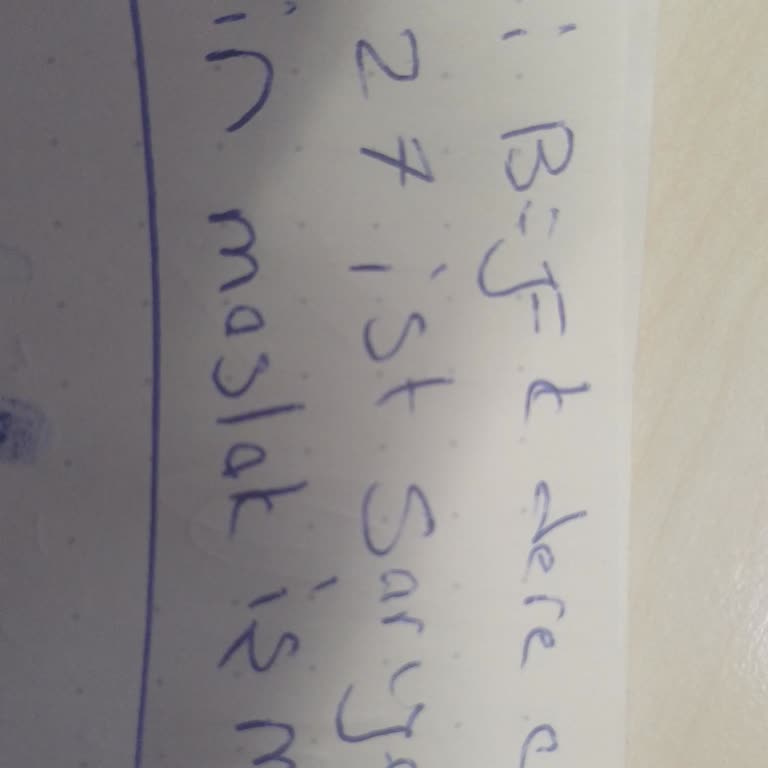 B = F k dere c
27 ist Sarıy
in maslak is m